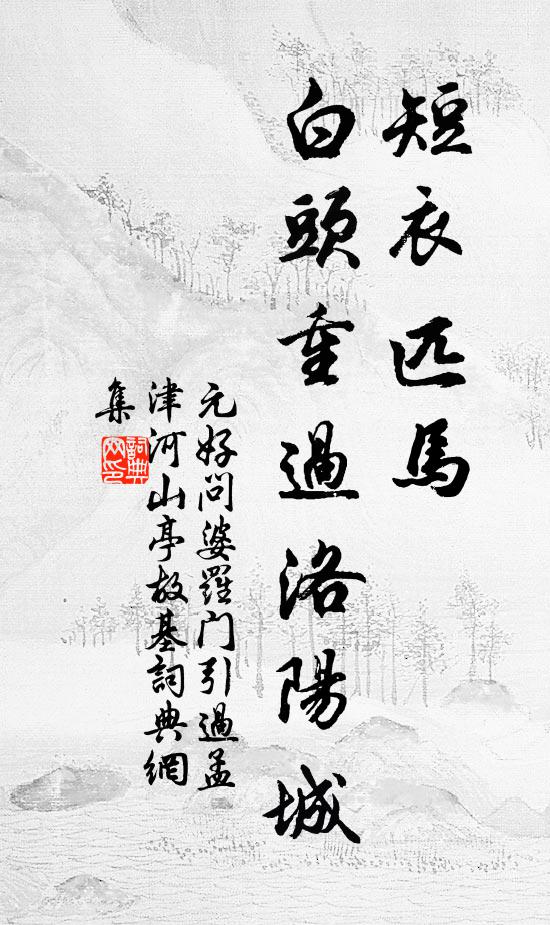 短衣匹馬
白頭重過洛陽城
元好問婆羅門引過孟
津河山亭故基詞典網
集
詞典網印